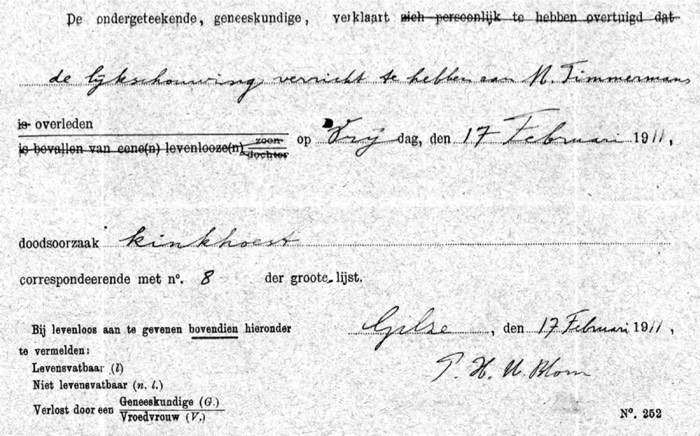 De ondergeteekende, geneeskundige, verklaart zich persoonlijk te hebben overtuigd dat
de lijkschouwing verricht te hebben aan M. Timmermans
is overleden
is bevallen van eene(n) levenlooze(n) zoon dochter op Vrijdag, den 17 Februari 1911,
doodsoorzaak kinkhoest
correspondeerende met nº. 8 der groote lijst.
Bij levenloos aan te gevenen bovendien hieronder
te vermelden:
Gilze, den 17 Februari 1911
Levensvatbaar (l)
Niet levensvatbaar (n. l.)
P. H. U. Blom
Verlost door een Geneeskundige (G.)
Vroedvrouw (V.)
Nº. 252